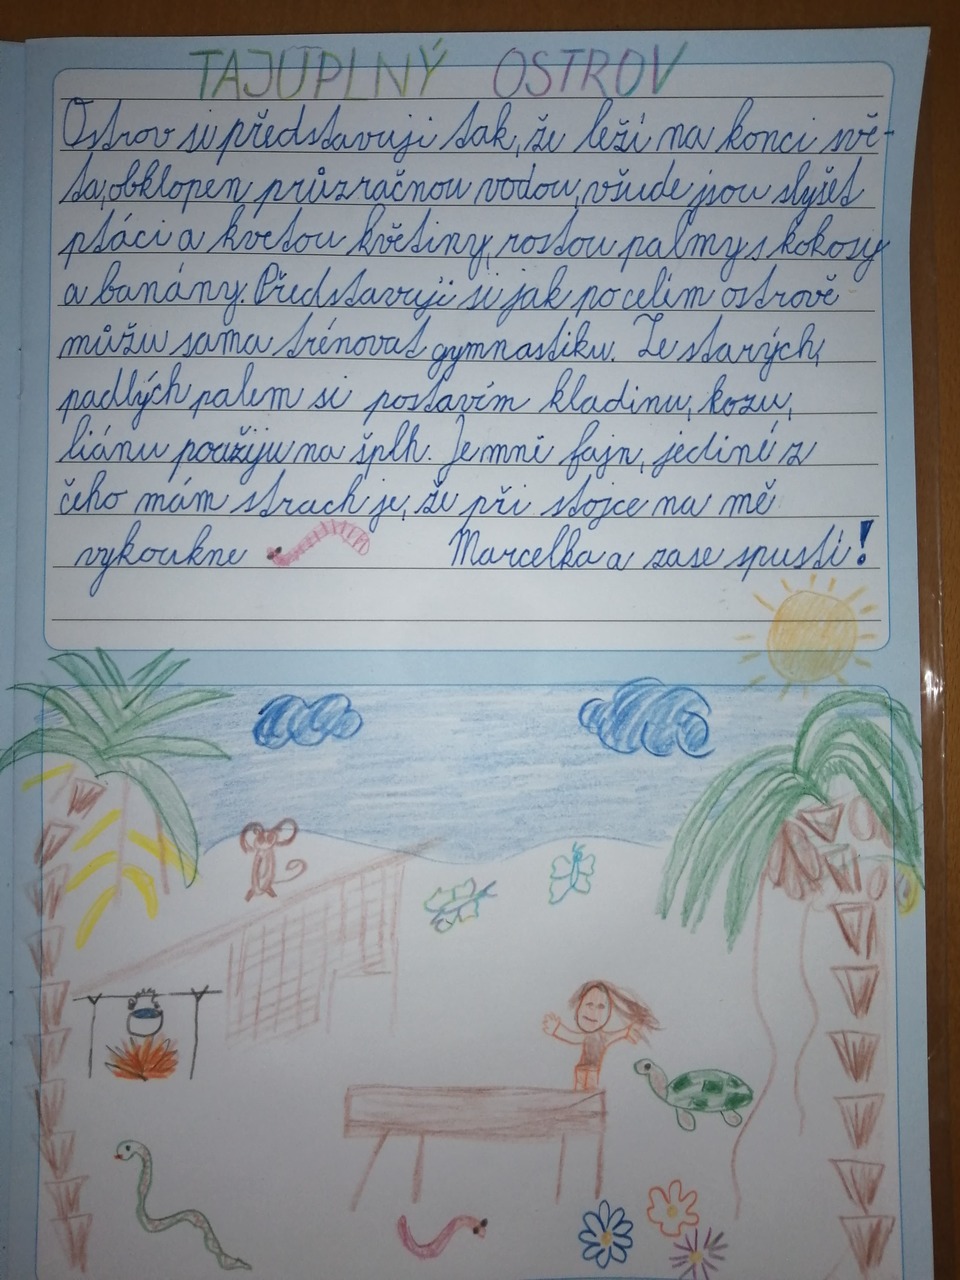 TAJUPLNÝ OSTROV
Ostrov si představuji tak, že leží na konci svě-
ta, obklopen průzračnou vodou, všude jsou slyšet
ptáci a kvetou květiny, rostou palmy s kokosy
a banány. Představuji si jak po celém ostrově
můžu sama trénovat gymnastiku. Ze starých,
padlých palem si postavím kladinu, kozu,
liánu použiju na šplh. Je mně fajn, jediné z
čeho mám strach je, že při stojce na mě
vykoukne Marcelka a zase spustí!